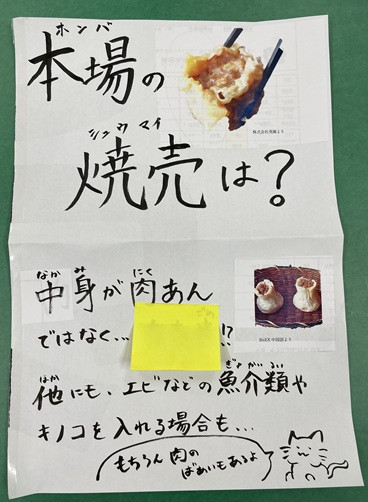 ホンバ
本場の
株式会社明園より
シュウマイ
焼売は?
なか み にく
中身が肉あん
ではなく... !?
BitEX中国語より
ほか ぎょかいるい
他にも、エビなどの魚介類や
キノコを入れる場合も...
もちろん肉の
ばあいもあるよ